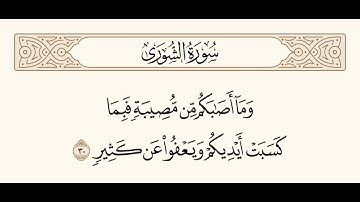 سُورَةُ الشُّورَىٰ
وَمَآ أَصَٰبَكُم مِّن مُّصِيبَةٍ فَبِمَا
كَسَبَتْ أَيْدِيكُمْ وَيَعْفُوا۟ عَن كَثِيرٍ ٣٠